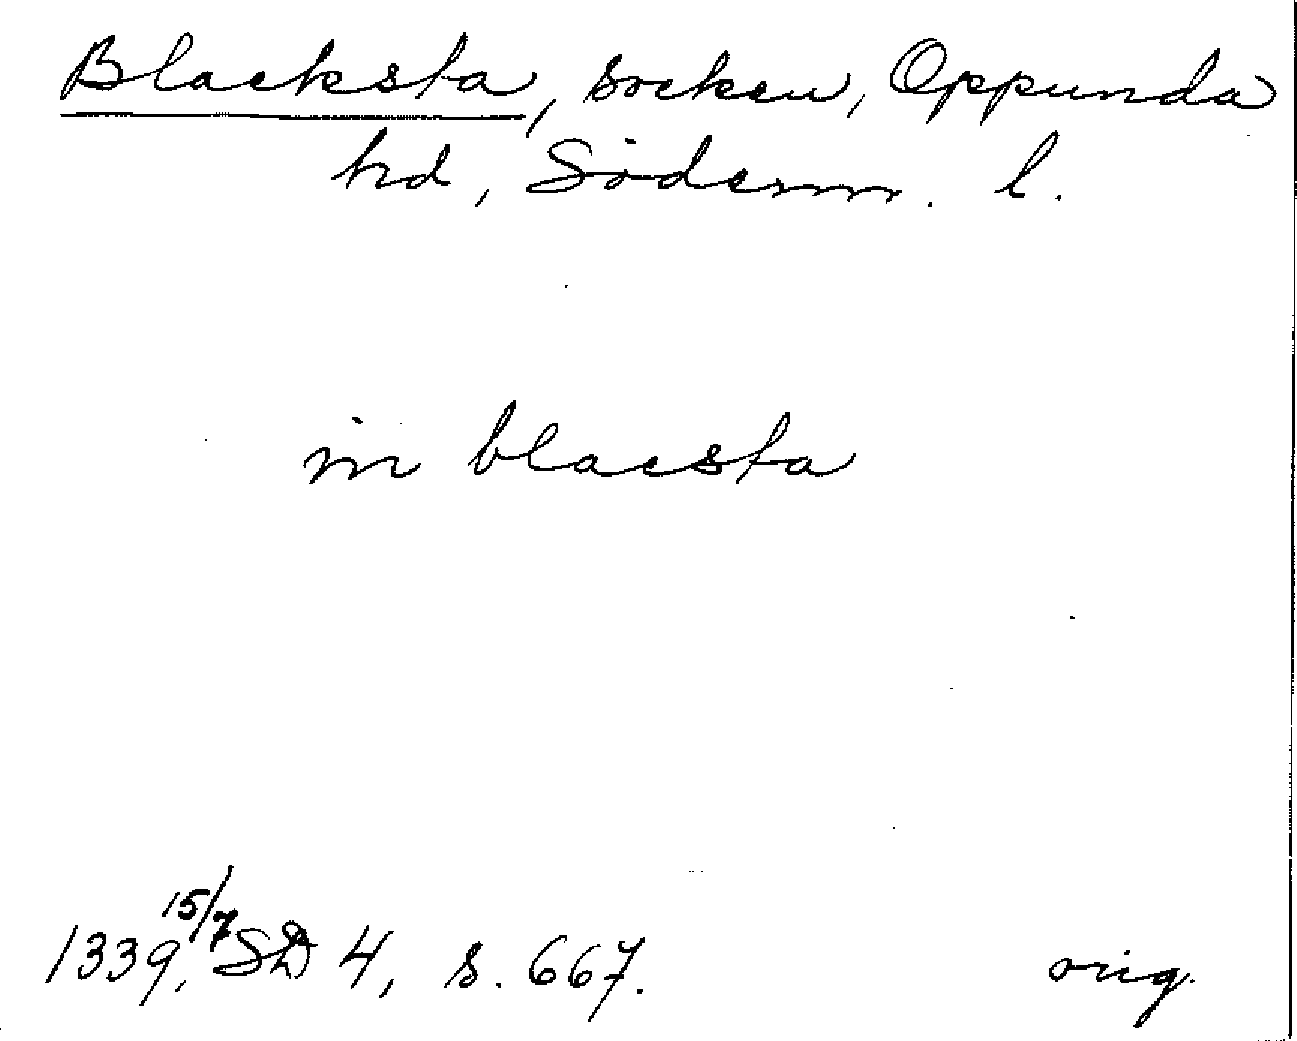 Blacksta, socken, Oppunda
hd, Söderm. l.
in blacsta
1339, 15/7 SD 4, s. 667. orig.